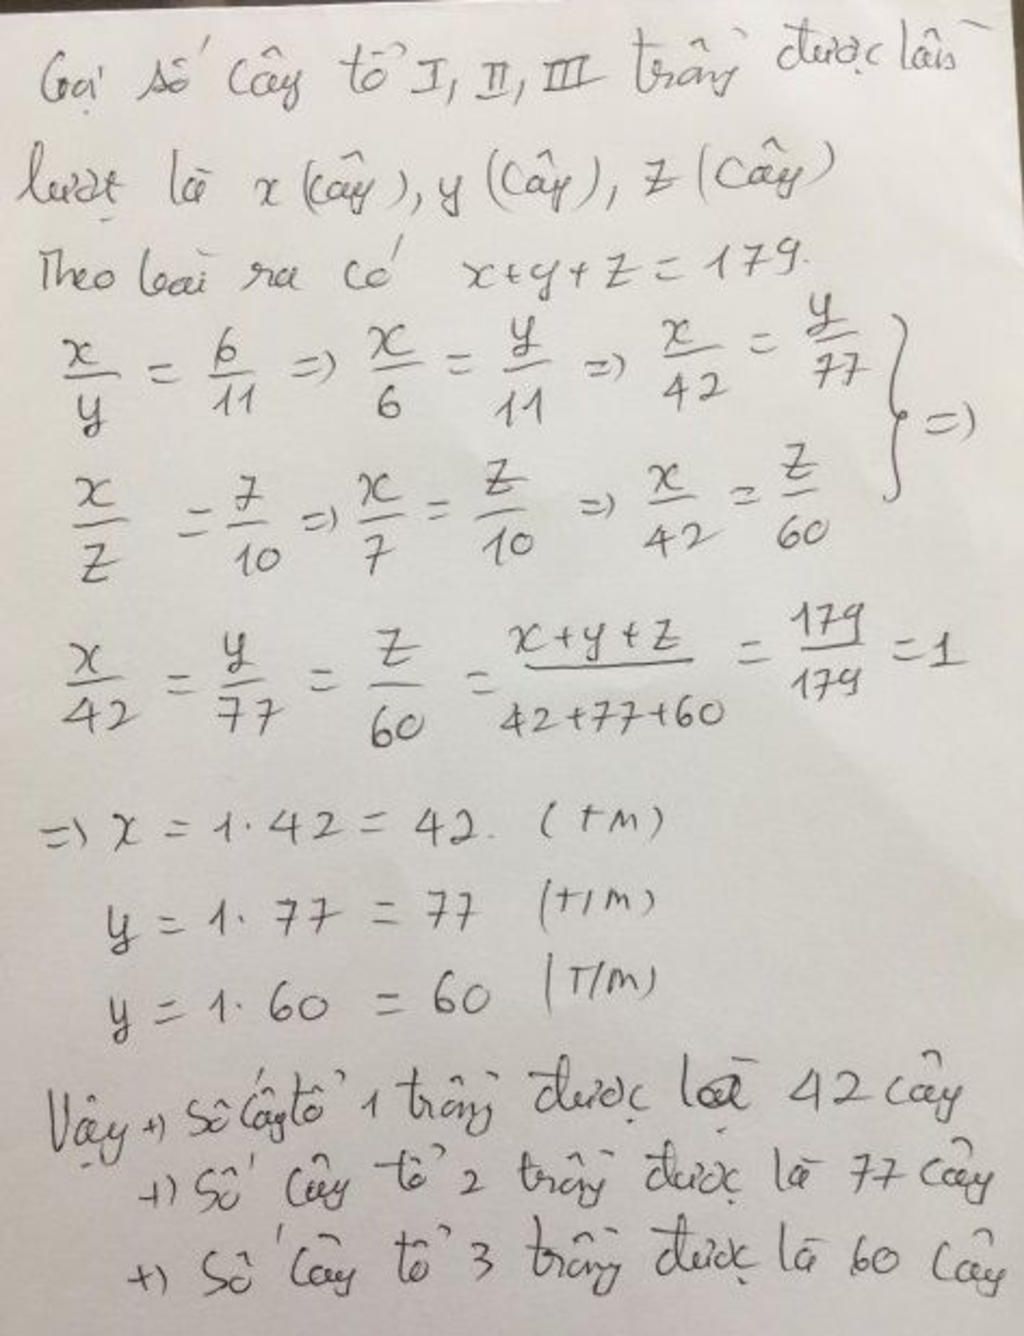 Gọi số cây tổ I, II, III trồng được lần
lượt là x (cây), y (cây), z (cây)
Theo bài ra có x+y+z=179.
x/y = 6/11 => x/6 = y/11 => x/42 = y/77 } =>
x/z = 7/10 => x/7 = z/10 => x/42 = z/60
x/42 = y/77 = z/60 = (x+y+z)/(42+77+60) = 179/179 = 1
=> x = 1.42 = 42. (TM)
y = 1.77 = 77 (T/M)
y = 1.60 = 60 (T/M)
Vậy +) Số cây tổ 1 trồng được là 42 cây
+) Số cây tổ 2 trồng được là 77 cây
+) Số cây tổ 3 trồng được là 60 cây